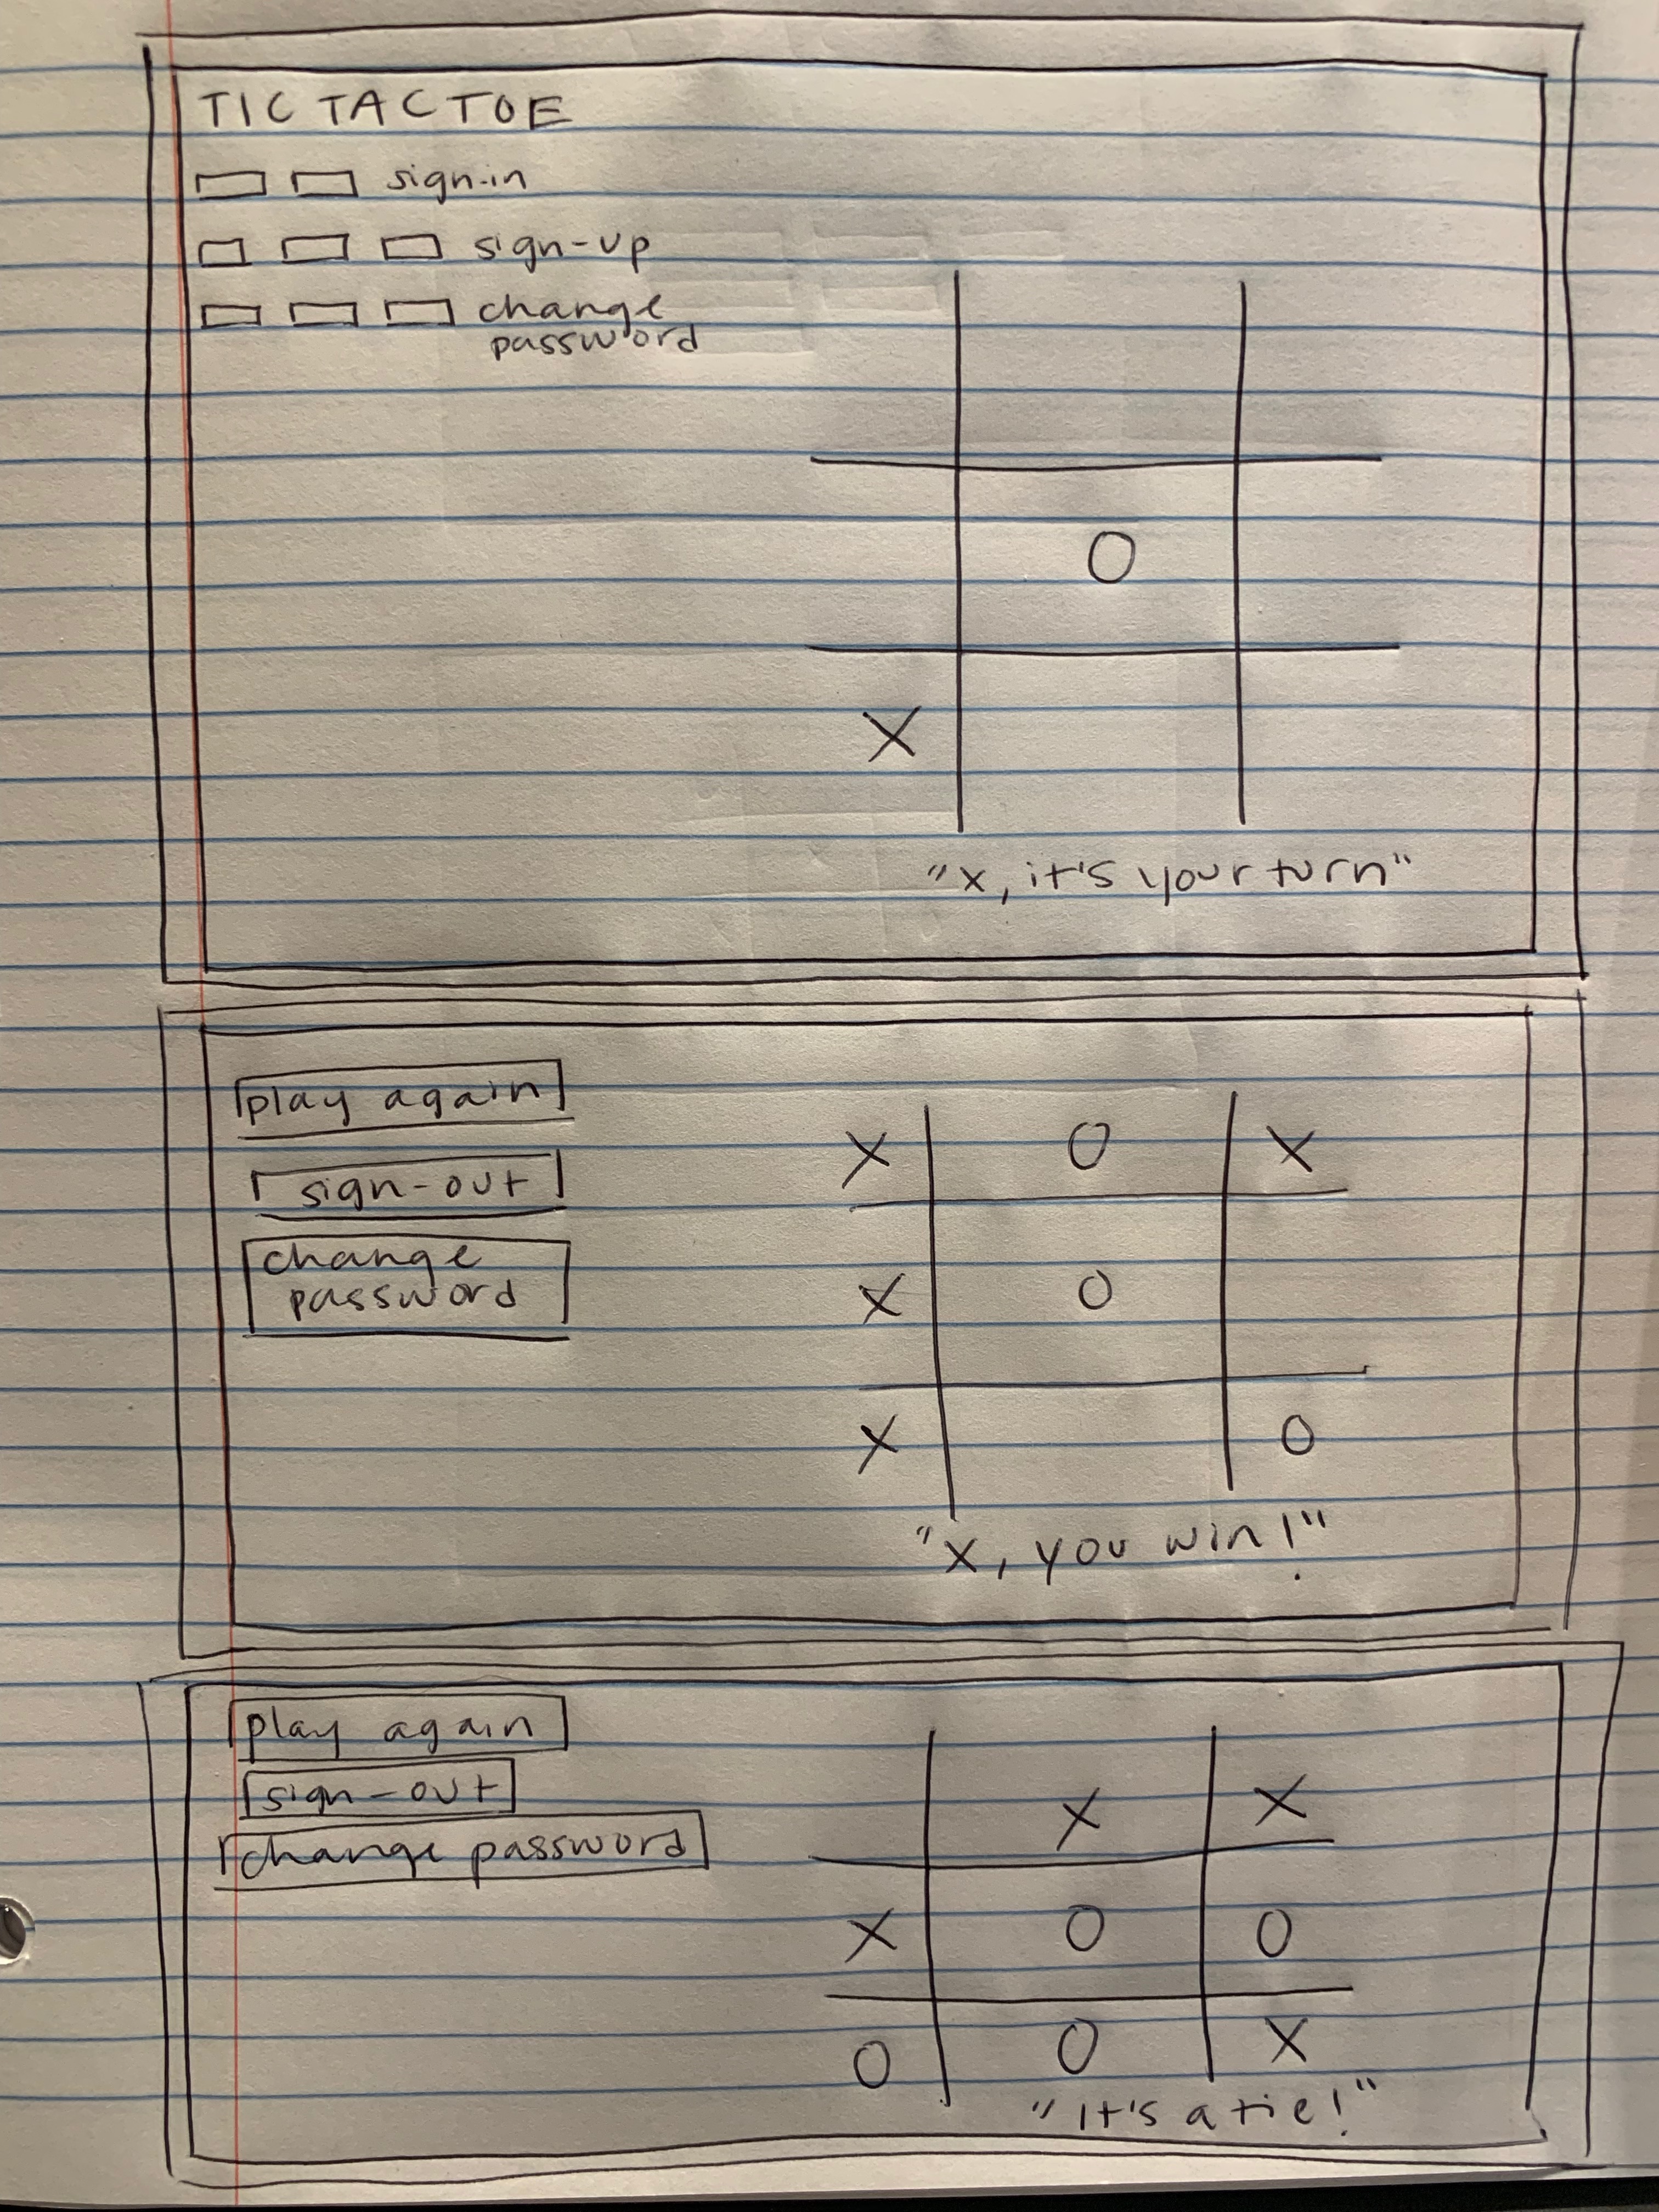 TIC TAC TOE
sign-in
sign-up
change
password
O
X
"x, it's your turn"
play again
sign-out
change
password
X O X
X O
X O
"X, you win!"
play again
sign-out
change password
X X
X O O
O O X
"It's a tie!"